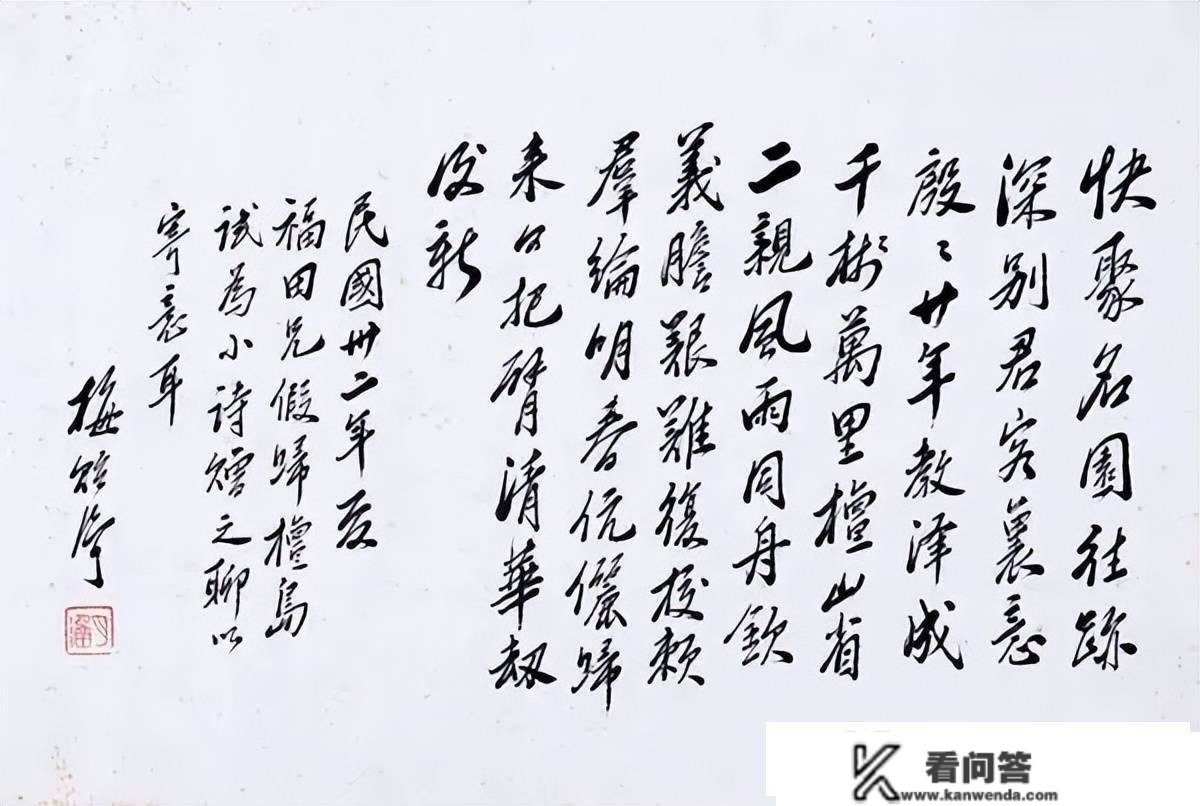 快聚名園往跡
深别君客裏意
殷〻廿年教澤成
千樹萬里檀山省
二親風雨同舟欽
義膽艱難復校賴
羣綸明春伉儷歸
来日把臂清華劫
後新
民國卅二年夏
福田兄假歸檀島
試為小詩贈之聊以
寄意耳
梅貽琦
月涵
看问答
www.kanwenda.com